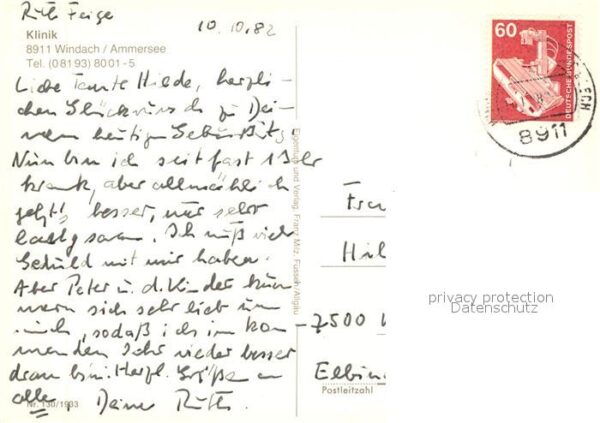 Ruth Feige 10.10.82
Klinik
8911 Windach / Ammersee
Tel. (0 81 93) 80 01 - 5
Liebe Tante Hilde, herzli-
chen Glückwunsch zu Dei-
nem heutigen Geburtstg.
Nun bin ich seit fast 1 Jahr
krank, aber allmählich
geht's besser, nur sehr
langsam. Ich muß viel
Geduld mit mir haben.
Aber Peter u. d. Kinder küm-
mern sich sehr lieb um
mich, sodaß ich im kom-
menden Jahr wieder besser
dran bin. Herzl. Grüße an
alle, Deine Ruth.
Nr. 130/1933
Eigentum und Verlag: Franz Milz, Füssen/Allgäu
60
DEUTSCHE BUNDESPOST
8911
LECH
Frau
Hil
7500
Elbin
Postleitzahl
privacy protection
Datenschutz